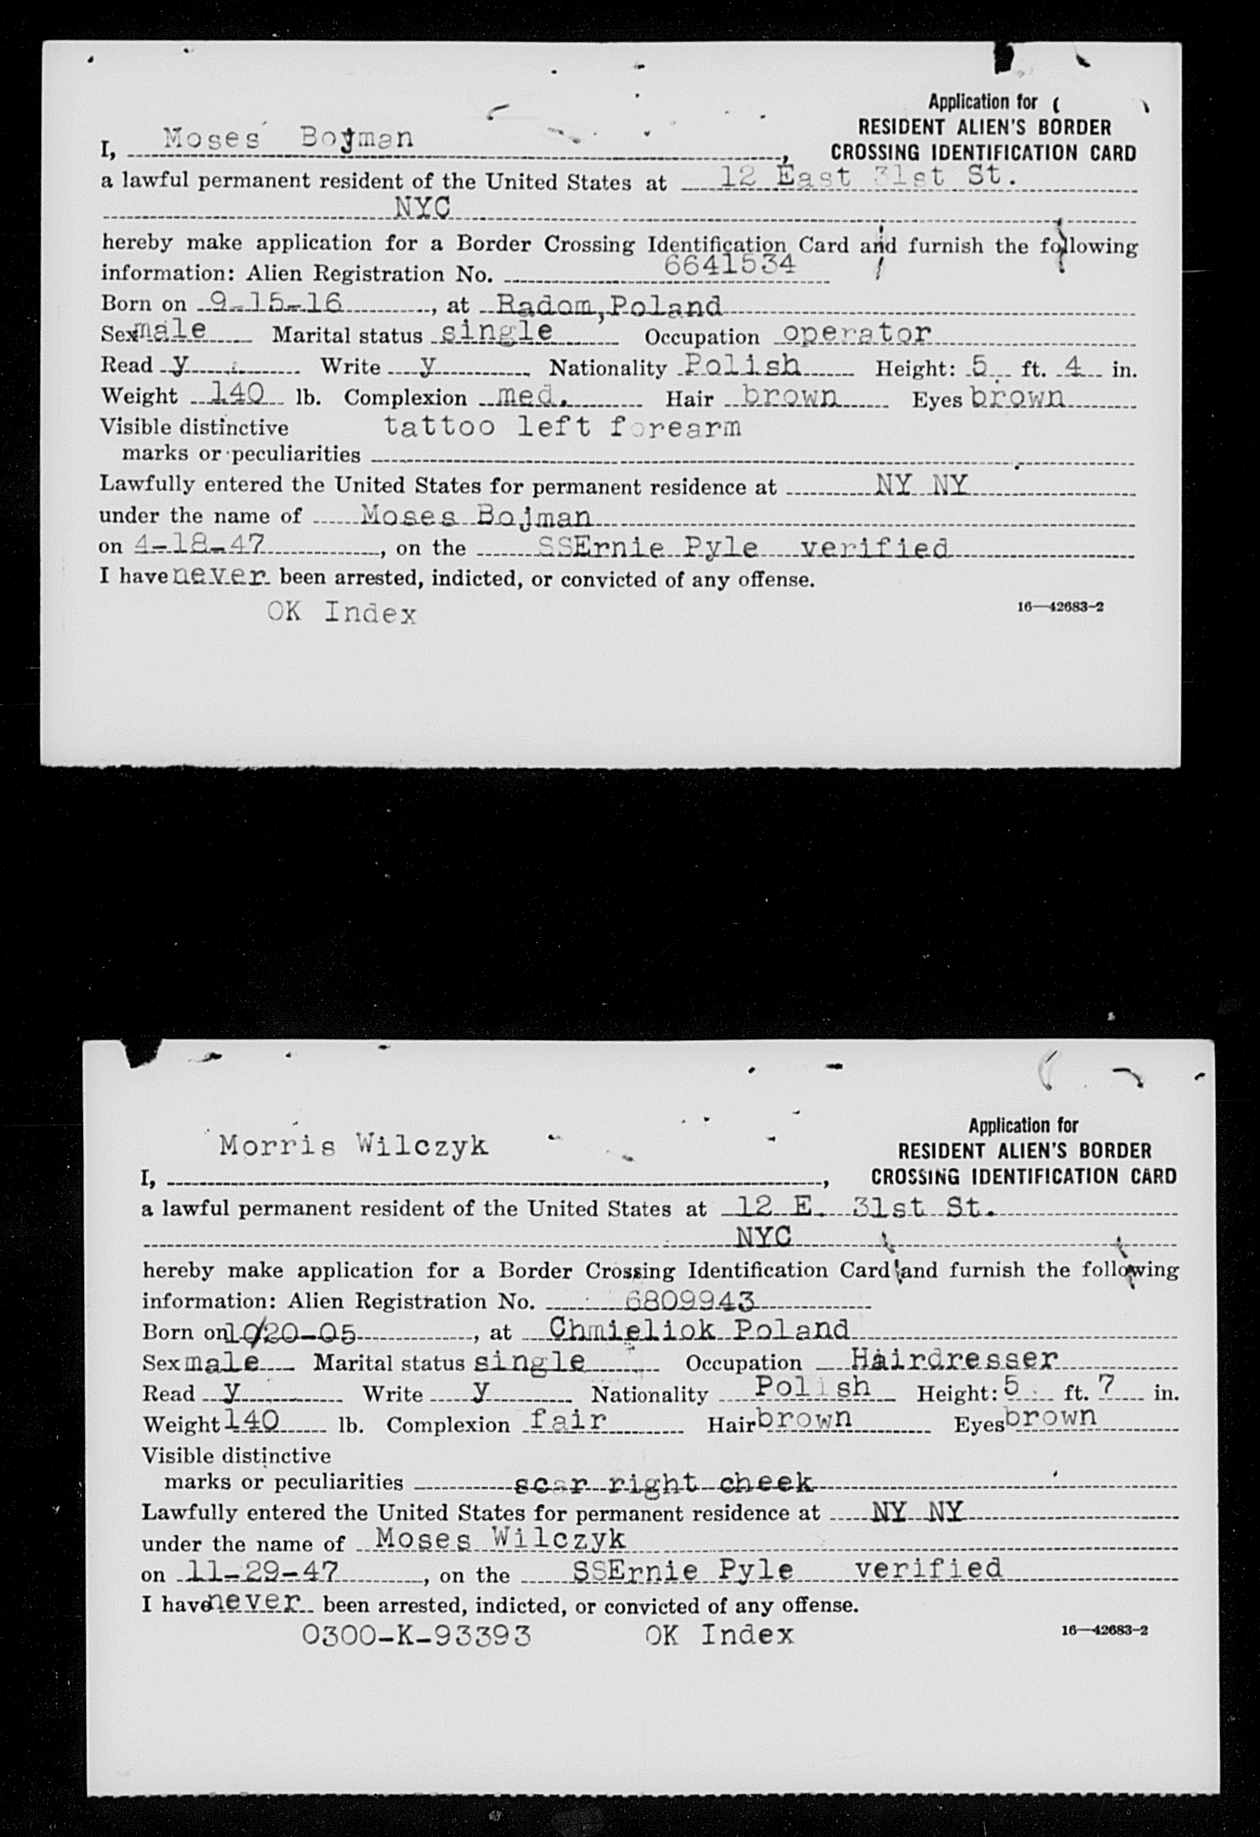 Application for
RESIDENT ALIEN'S BORDER
CROSSING IDENTIFICATION CARD
I, Moses Bojman,
a lawful permanent resident of the United States at 12 East 31st St.
NYC
hereby make application for a Border Crossing Identification Card and furnish the following
information: Alien Registration No. 6641534
Born on 9-15-16, at Radom, Poland
Sex male Marital status single Occupation operator
Read y Write y Nationality Polish Height: 5 ft. 4 in.
Weight 140 lb. Complexion med. Hair brown Eyes brown
Visible distinctive tattoo left forearm
marks or peculiarities
Lawfully entered the United States for permanent residence at NY NY
under the name of Moses Bojman
on 4-18-47, on the SSErnie Pyle verified
I have never been arrested, indicted, or convicted of any offense.
OK Index 16—42683-2
Application for
RESIDENT ALIEN'S BORDER
CROSSING IDENTIFICATION CARD
Morris Wilczyk
I, ,
a lawful permanent resident of the United States at 12 E. 31st St.
NYC
hereby make application for a Border Crossing Identification Card and furnish the following
information: Alien Registration No. 6809943
Born on 10/20-05, at Chmieliok Poland
Sex male Marital status single Occupation Hairdresser
Read y Write y Nationality Polish Height: 5 ft. 7 in.
Weight 140 lb. Complexion fair Hair brown Eyes brown
Visible distinctive
marks or peculiarities scar right cheek
Lawfully entered the United States for permanent residence at NY NY
under the name of Moses Wilczyk
on 11-29-47, on the SSErnie Pyle verified
I have never been arrested, indicted, or convicted of any offense.
0300-K-93393 OK Index 16—42683-2